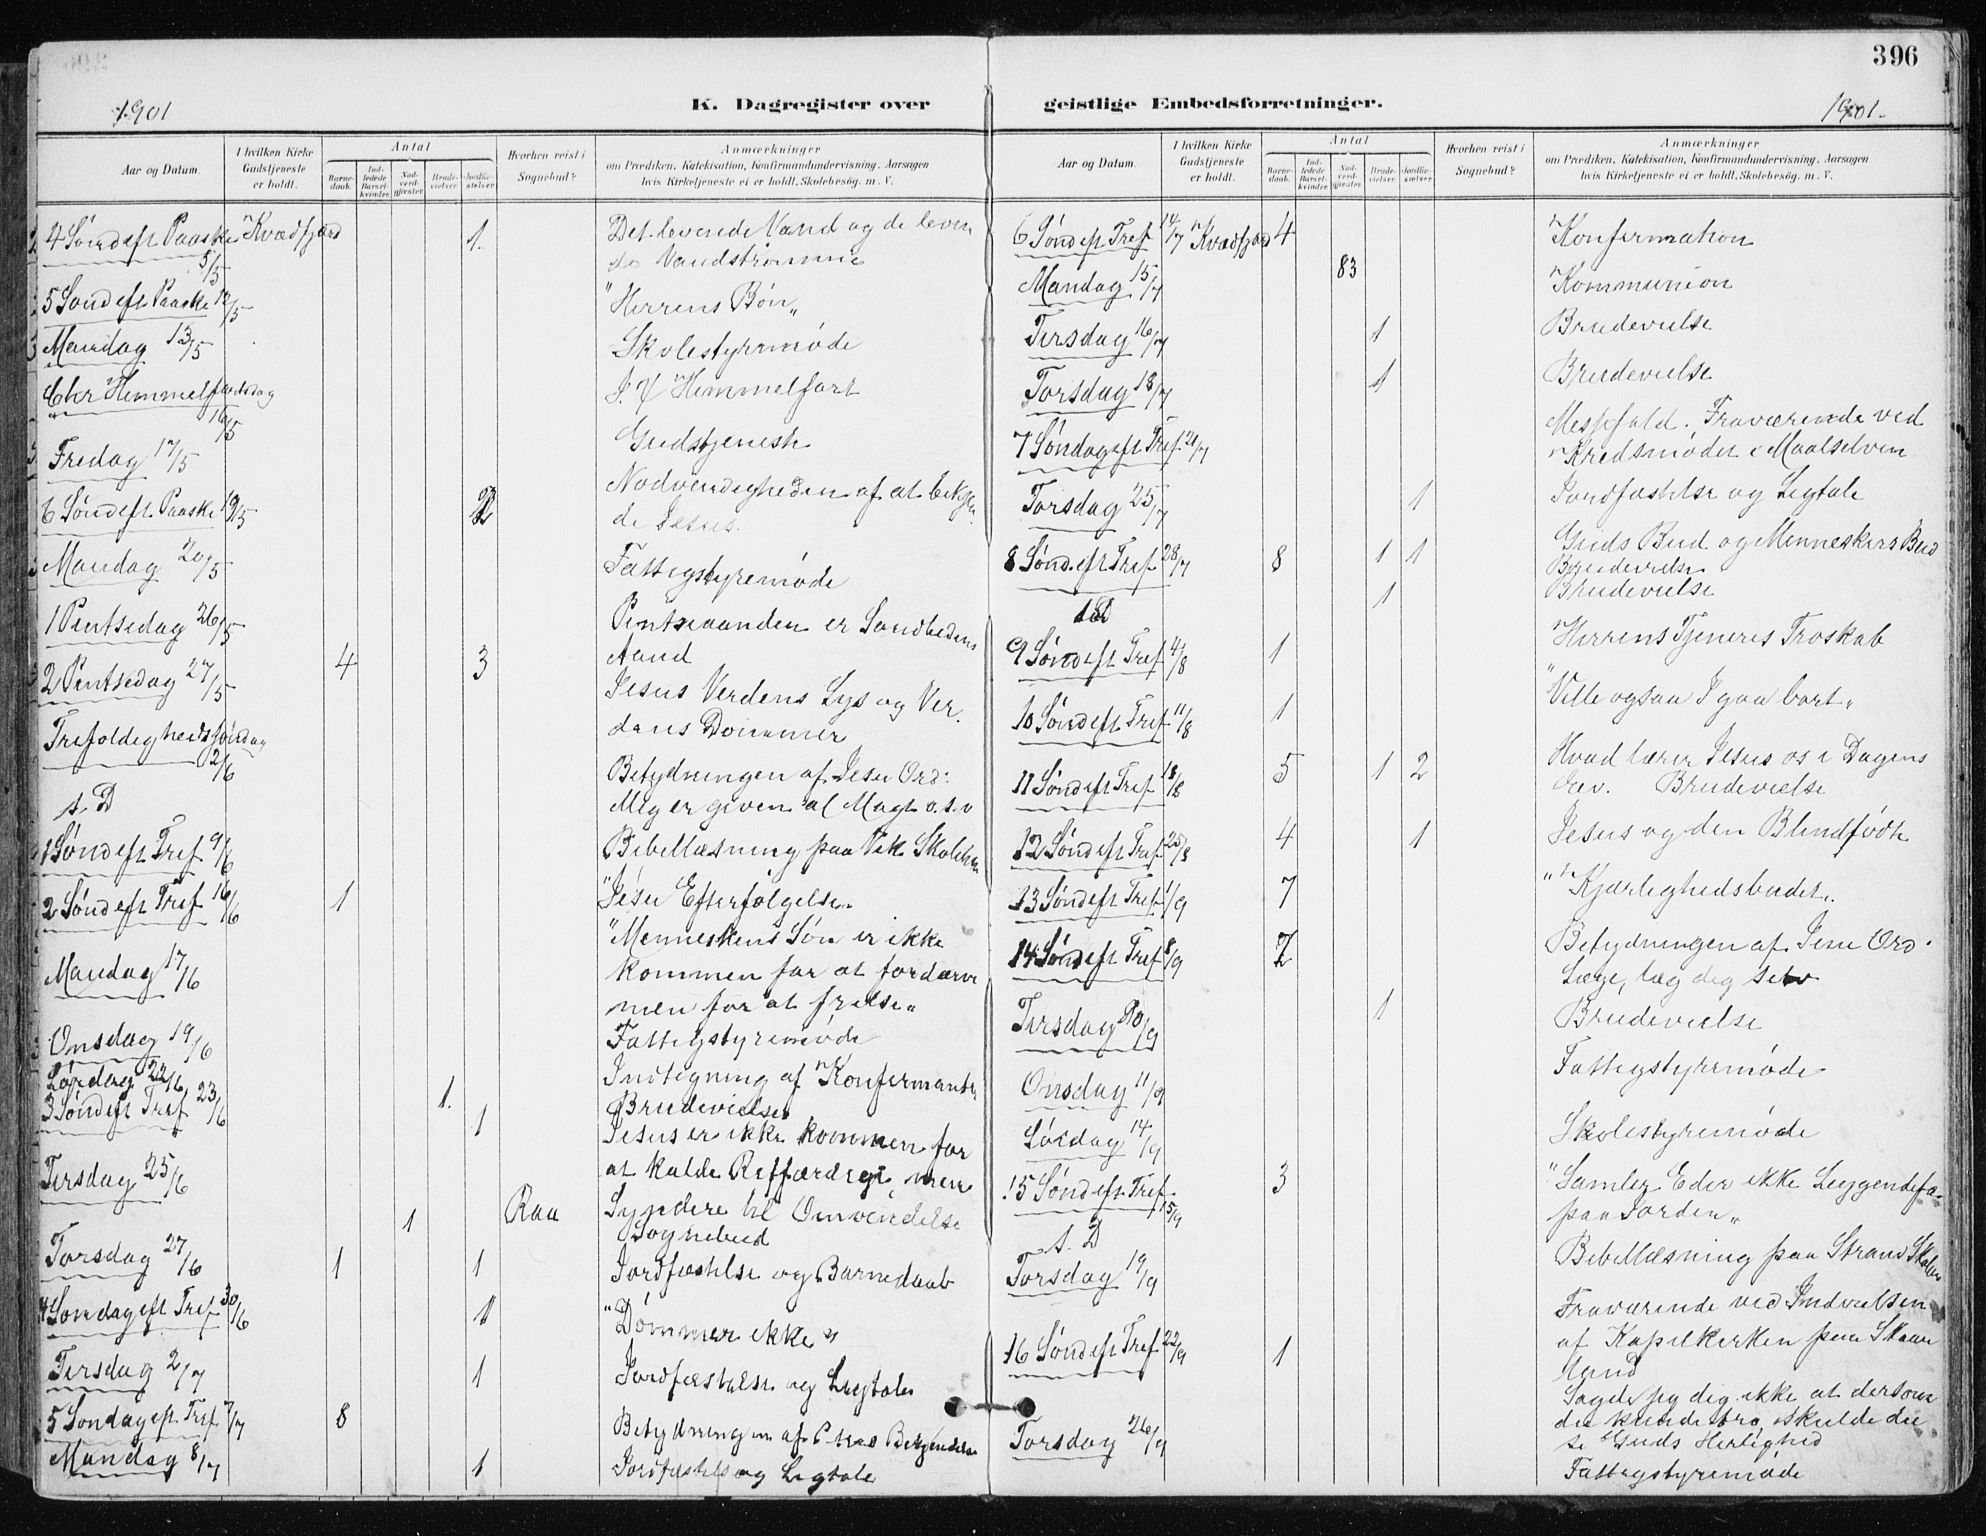 396
1901
K. Dagregister over
geistlige Embedsforretninger.
1901.
Aar og Datum.
I hvilken Kirke Gudstjeneste er holdt.
Antal
Barnedaab.
Indledede Barselkvinder.
Nadverdgjester.
Brudevielser.
Jordfæstelser.
Hvorhen reist i Sognebud?
Anmærkninger
om Prædiken, Katekisation, Konfirmandundervisning, Aarsagen hvis Kirketjeneste ei er holdt, Skolebesøg, m. V.
4 Sønd eft Paaske 5/5 Kvædfjord 1. Det levende Vand og de leven
de Vandstrømme
5 Sønd eft Paaske 12/5 "Herrens Bøn"
Mandag 13/5 Skolestyrmøde
Chr Himmelfartsdag 16/5 J. X Himmelfart
Fredag 17/5 Gudstjeneste
6 Sønd eft Paaske 19/5 2 Nødvendigheden af at bekjen
de Jesus.
Mandag 20/5 Fattigstyremøde
1 Pintsedag 26/5 Pintseaanden er Sandhedens
Aand
2 Pintsedag 27/5 4 3 Jesus Verdens Lys og Ver
dens Dommer
Trefoldighedssøndag 2/6 Betydningen af Jesu Ord:
Mig er given al Magt o.s.v
s. D Bibellæsning paa Vik Skolehus
1 Sønd eft Tref 9/6 "Jesu Efterfølgelse"
2 Sønd eft Tref 16/6 1 "Menneskens Søn er ikke
kommen for at fordærve
men for at frelse"
Mandag 17/6 Fattigstyremøde
Onsdag 19/6 Indtegning af Konfirmanter
Lørdag 22/6 1. Brudevielse
3 Sønd eft Tref 23/6 1 Jesus er ikke kommen for
at kalde Retfærdige men
Syndere til Omvendelse
Tirsdag 25/6 1 Raa Sognebud
Torsdag 27/6 1 1 Jordfæstelse og Barnedaab
4 Søndag eft Tref 30/6 1 "Dømmer ikke"
Tirsdag 2/7 1 Jordfæstelse og Ligtale
5 Søndag eft Tref 7/7 8 Betydningen af Bekjendelse
Mandag 8/7 1 Jordfæstels og Ligtale
Aar og Datum.
I hvilken Kirke Gudstjeneste er holdt.
Antal
Barnedaab.
Indledede Barselkvinder.
Nadverdgjester.
Brudevielser.
Jordfæstelser.
Hvorhen reist i Sognebud?
Anmærkninger
om Prædiken, Katekisation, Konfirmandundervisning, Aarsagen hvis Kirketjeneste ei er holdt, Skolebesøg, m. V.
6 Sønd eft Tref 14/7 Kvædfjord 4 Konfirmation
Mandag 15/7 83 Kommunion
Tirsdag 16/7 1 Brudevielse
Torsdag 18/7 1 Brudevielse
7 Søndag eft Tref 21/7 Messfald. Fraværende ved
Kredsmøde i Maalselven
Torsdag 25/7 1 Jordfæstelse og Ligtale
8 Sønd eft Tref 28/7 8 1 1 Guds Bud og Menneskers Bud
Brudevielse
s. D 1 Brudevielse
9 Sønd eft Tref 4/8 1 Herrens Tjeneres Troskab
10 Sønd eft Tref 11/8 1 "Ville ogsaa I gaa bort"
11 Sønd eft Tref 18/8 5 1 2 Hvad lærer Jesus os i Dagens
Ev. Brudevielse
12 Sønd eft Tref 25/8 4 1 Jesus og den Blindfødte
13 Sønd eft Tref 1/9 7 "Kjærlighedsbudet"
14 Sønd eft Tref 8/9 2 Betydningen af Jesu Ord
Læge, læg dig selv
Tirsdag 10/9 1 Brudevielse
Onsdag 11/9 Fattigstyremøde
Lørdag 14/9 Skolestyremøde
15 Sønd eft Tref 15/9 3 "Samler Eder ikke Liggendefæ
paa Jorden"
s. D Bibellæsning paa Strand Skolehus
Torsdag 19/9 Fraværende ved Indvielsen
af Kapelkirken paa Skaan
land
16 Sønd eft Tref 22/9 1 Sagde jeg dig ikke at dersom
du kunde tro, skulde du
se Guds Herlighed
Torsdag 26/9 Fattigstyremøde